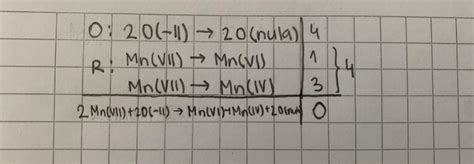 O: 2O(-II) → 2O(nula) | 4
R: Mn(VII) → Mn(VI) | 1 } 4
Mn(VII) → Mn(IV) | 3
2Mn(VII)+2O(-II) → Mn(VI)+Mn(IV)+2O(nul | 0